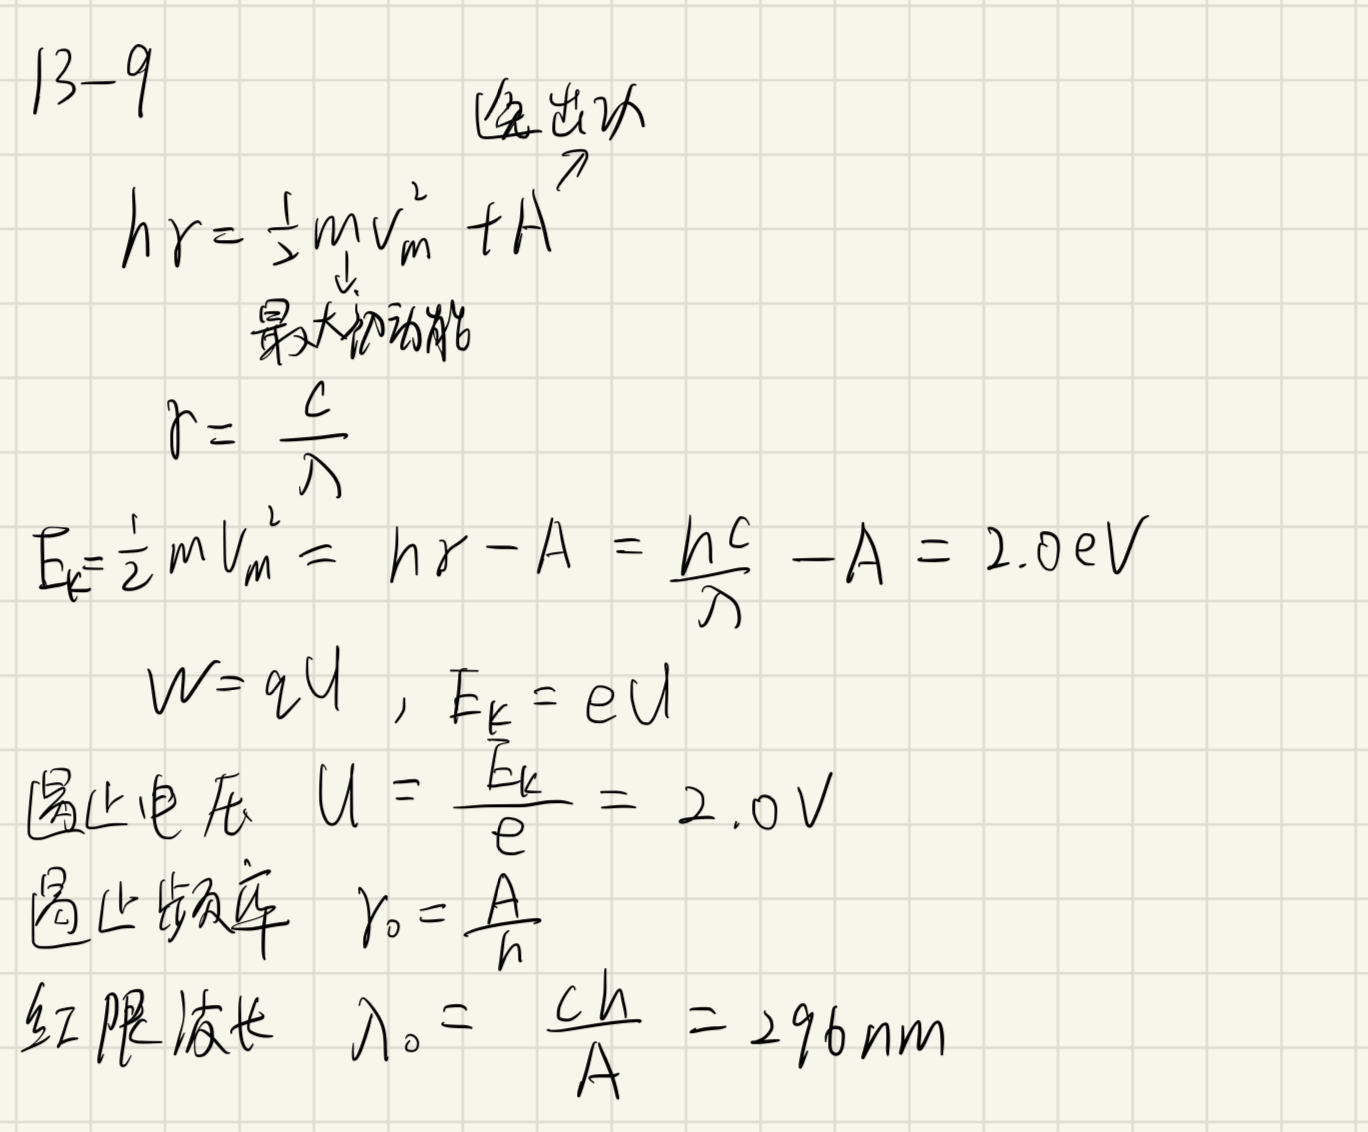 13-9
逸出功
hγ = 1/2 mv_m² + A
最大初动能
γ = c/λ
E_k = 1/2 mV_m² = hγ - A = hc/λ - A = 2.0eV
W = qU , E_k = eU
遏止电压 U = E_k/e = 2.0V
遏止频率 γ₀ = A/h
红限波长 λ₀ = ch/A = 296nm